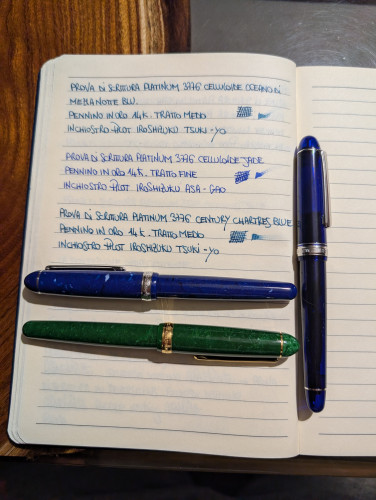 PROVA DI SCRITTURA PLATINUM 3776 CELLULOIDE OCEANO DI
MEZZANOTTE BLU.
PENNINO IN ORO 14K. TRATTO MEDIO
INCHIOSTRO PILOT IROSHIZUKU TSUKI-YO
PROVA DI SCRITTURA PLATINUM 3776 CELLULOIDE JADE
PENNINO IN ORO 14K. TRATTO FINE
INCHIOSTRO PILOT IROSHIZUKU ASA-GAO
PROVA DI SCRITTURA PLATINUM 3776 CENTURY CHARTRES BLUE
PENNINO IN ORO 14K. TRATTO MEDIO
INCHIOSTRO PILOT IROSHIZUKU TSUKI-YO